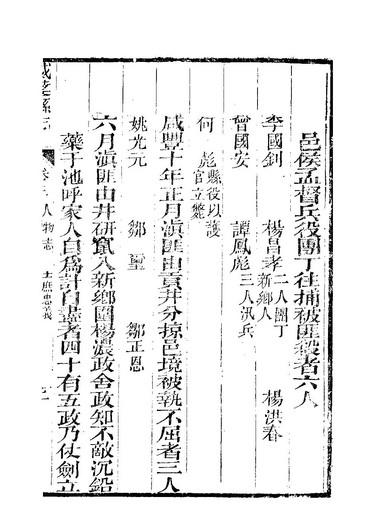 邑侯孟督兵役團丁往捕被匪殺者六人
李國釗 楊昌孝二人團丁新鄉人 楊洪春
曾國安 譚鳳彪三人汛兵
何 彪縣役以護官立斃
咸豐十年正月滇匪由貢井分掠邑境被執不屈者三人
姚光元 鄒璽 鄒正恩
六月滇匪由井研竄入新鄉圍楊濃政舍政知不敵沉鉛
藥于池呼家人自爲計自盡者四十有五政乃仗劍立
人物志 士庶忠義